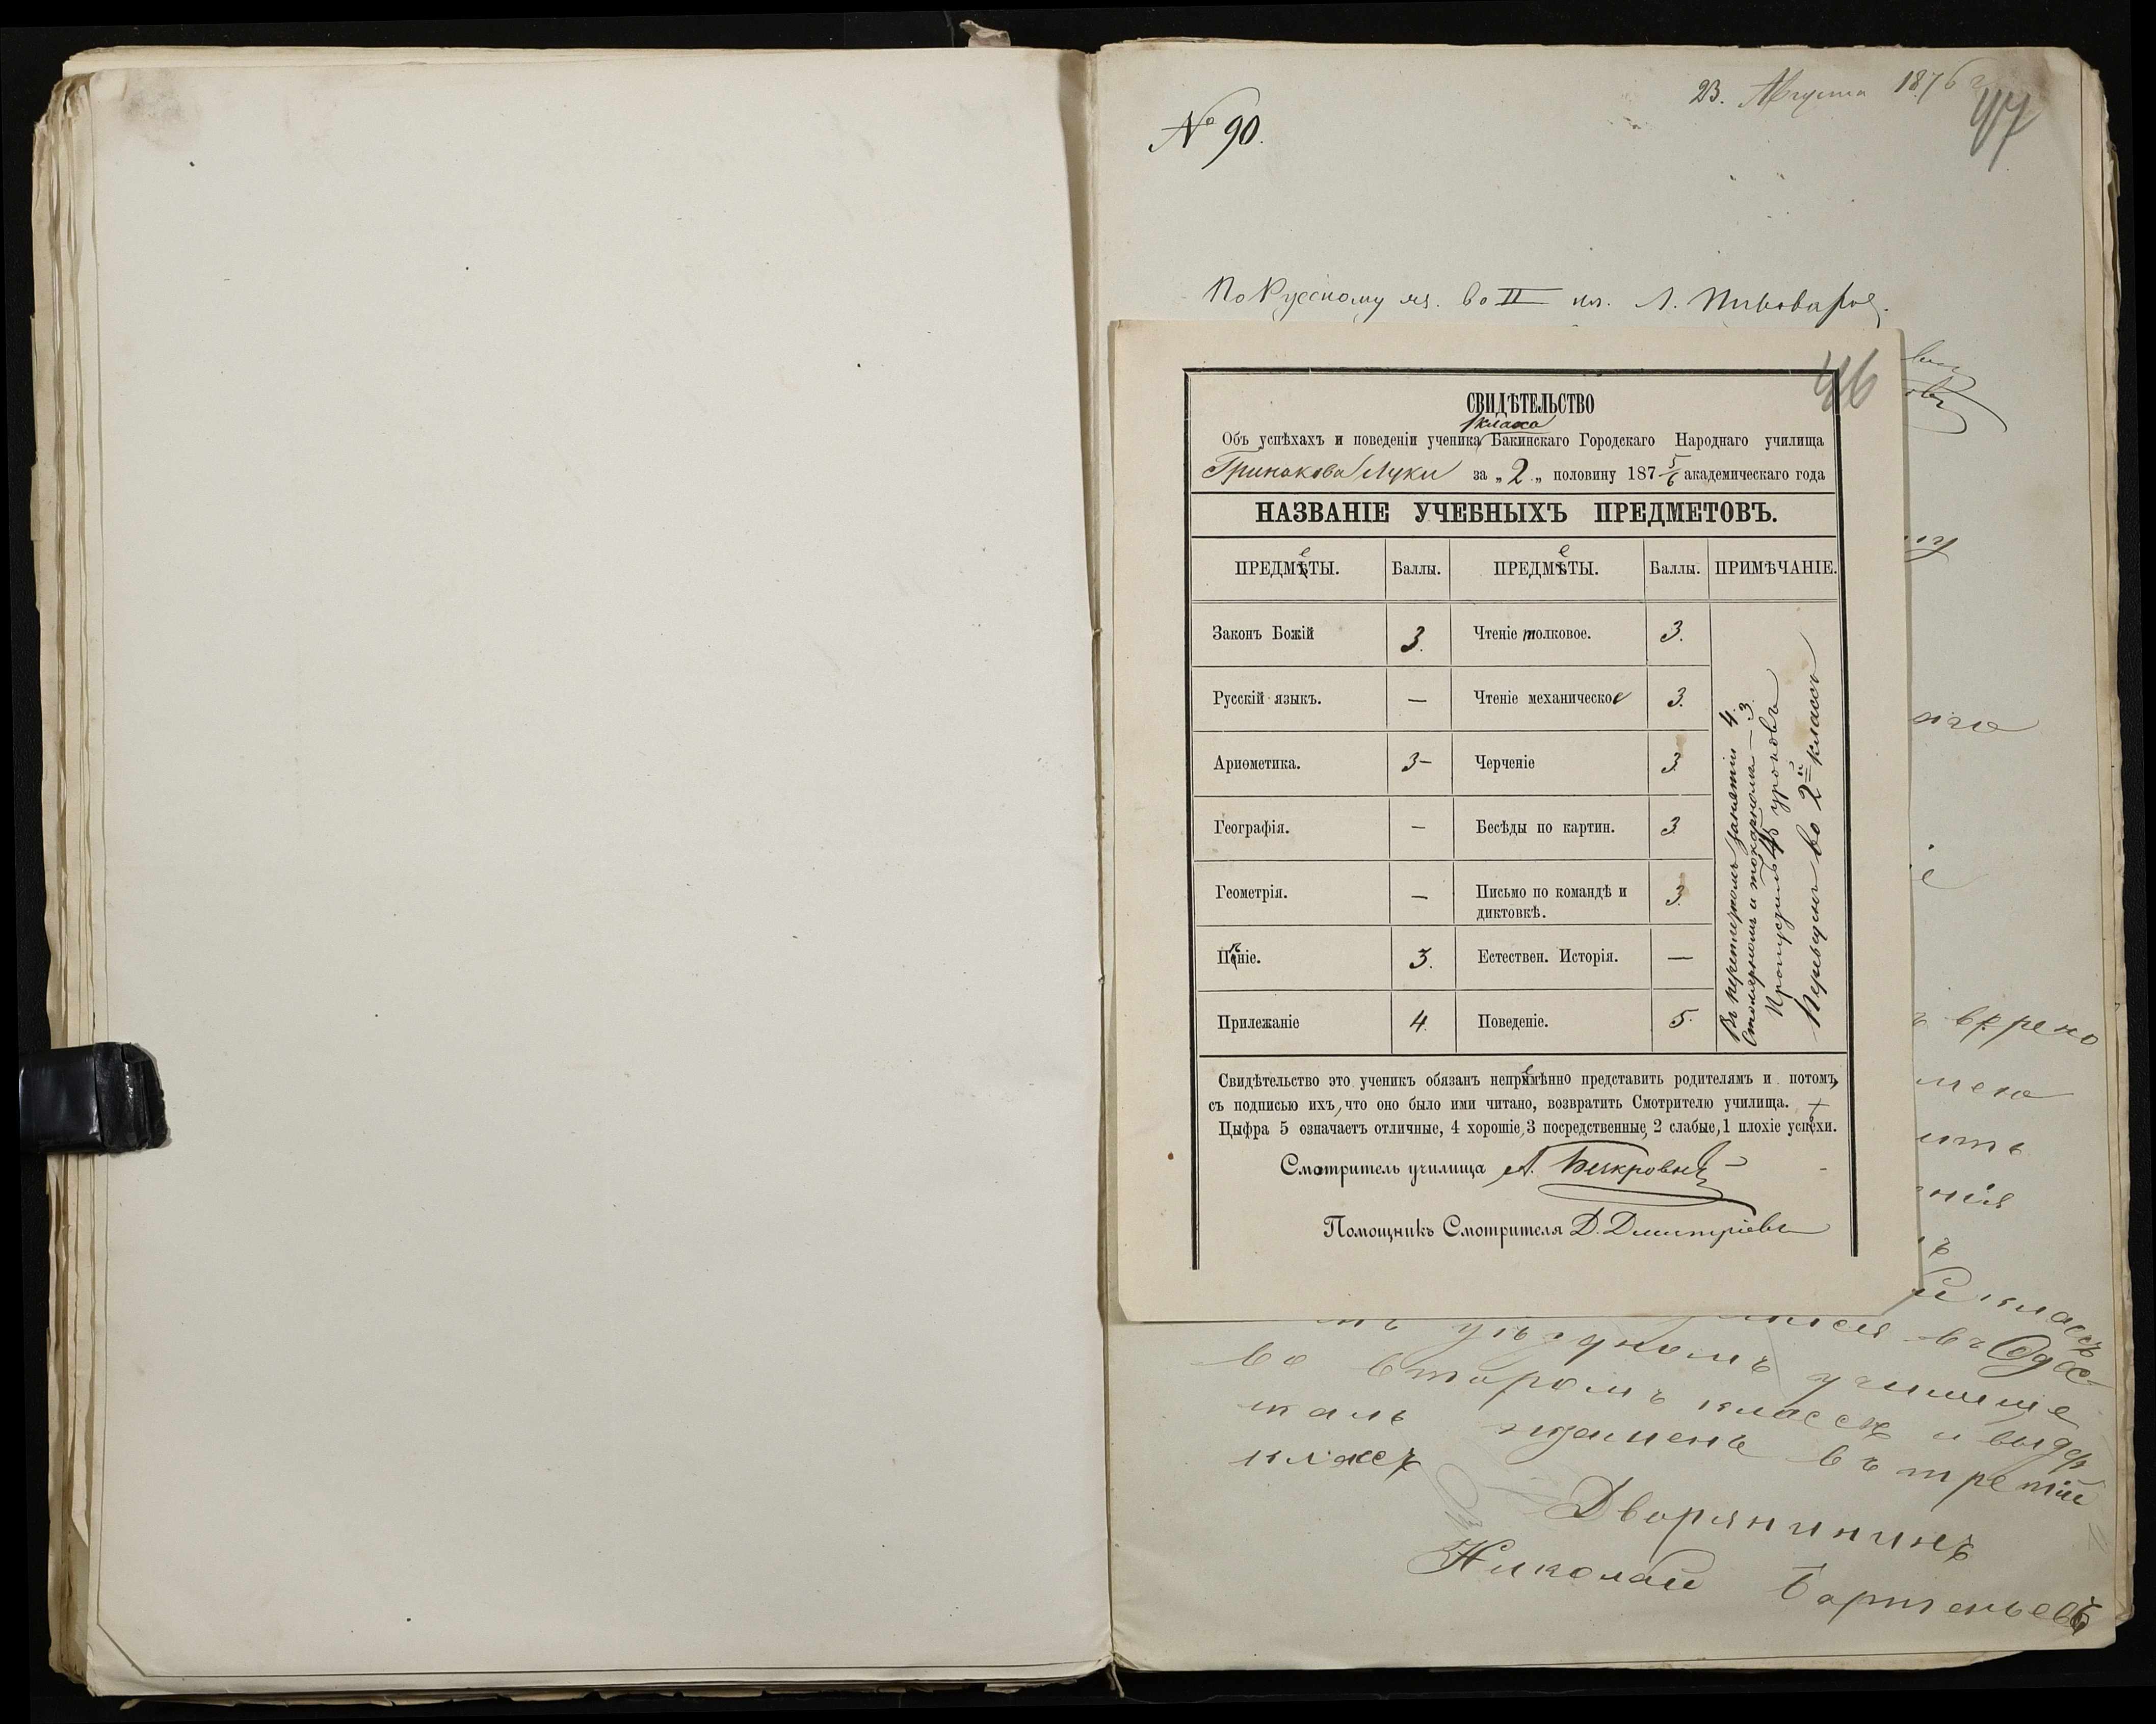 23. Августа 1876 г
47
№ 90.
По Русскому яз. во II кл. Л. Пивоваров.
46
СВИДѢТЕЛЬСТВО
1 класса
Объ успѣхахъ и поведеніи ученика Бакинскаго Городскаго Народнаго училища
Гринакова Луки за „ 2 „ половину 187 5/6 академическаго года
НАЗВАНІЕ УЧЕБНЫХЪ ПРЕДМЕТОВЪ.
ПРЕДМЕТЫ. Баллы. ПРЕДМЕТЫ. Баллы. ПРИМѢЧАНІЕ.
Законъ Божій 3. Чтеніе толковое. 3.
Русскій языкъ. — Чтеніе механическое 3.
Ариѳметика. 3– Черченіе 3
Географія. — Бесѣды по картин. 3
Геометрія. — Письмо по командѣ и диктовкѣ. 3.
Пѣніе. 3. Естествен. Исторія. —
Прилежаніе 4. Поведеніе. 5.
Въ переплетномъ занятіи 4.
Столярномъ и токарномъ — 3.
Пропустилъ 45 уроковъ
во 2й классъ
Свидѣтельство это ученикъ обязанъ непремѣнно представить родителямъ и потомъ,
съ подписью ихъ, что оно было ими читано, возвратить Смотрителю училища.
Цыфра 5 означаетъ отличные, 4 хорошіе, 3 посредственные, 2 слабые, 1 плохіе успѣхи.
Смотритель училища А.
Помощникъ Смотрителя Д. Дмитріевъ
классъ
уѣздномъ училище
во второмъ классѣ и выдер
жалъ экзаменъ въ третій
классъ
Дворянинъ
Николай